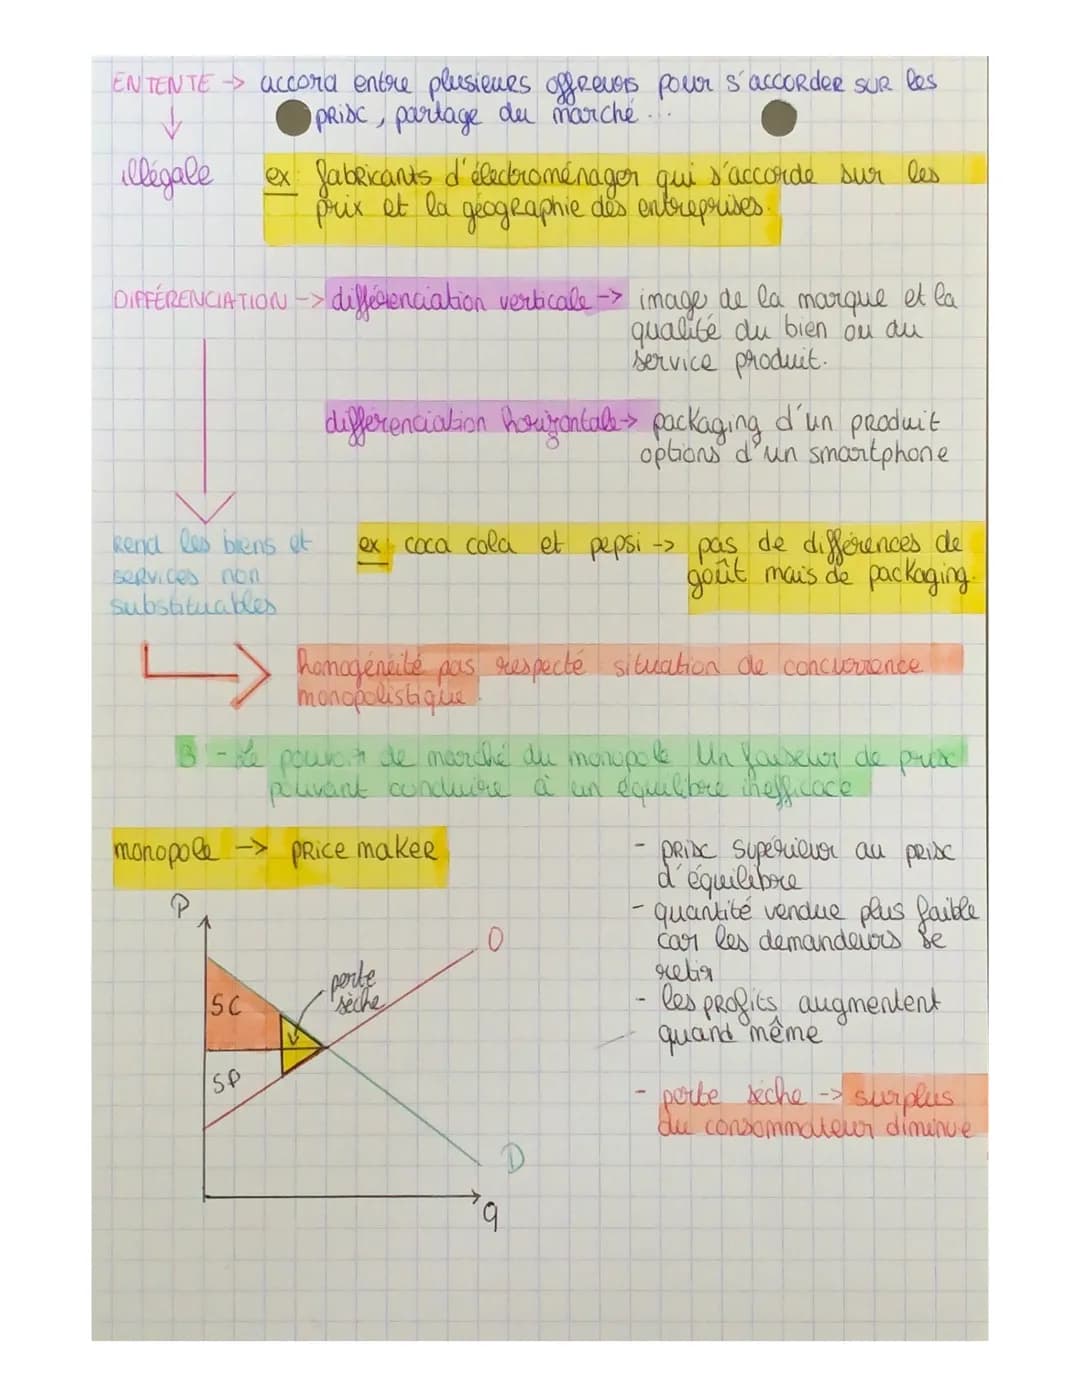 ENTENTE → accord entre plusieurs offreurs pour s'accorder sur les
prix, partage du marché...
illégale ex: fabricants d'électroménager qui s'accorde sur les
prix et la géographie des entreprises.
DIFFÉRENCIATION → différenciation verticale → image de la marque et la
qualité du bien ou du
service produit.
différenciation horizontale → packaging d'un produit
options d'un smartphone
Rend les biens et
services non
substituables
ex: coca cola et pepsi → pas de différences de
goût mais de packaging.
homogénéité pas respecté situation de concurrence
monopolistique.
B - Le pouvoir de marché du monopole Un faiseur de prix
pouvant conduire à un équilibre inefficace
monopole → price maker
- prix supérieur au prix
d'équilibre
- quantité vendue plus faible
car les demandeurs se
retir
- les profits augmentent
quand même
- perte sèche → surplus
du consommateur diminue
P
O
perte
sèche
SC
SP
D
q